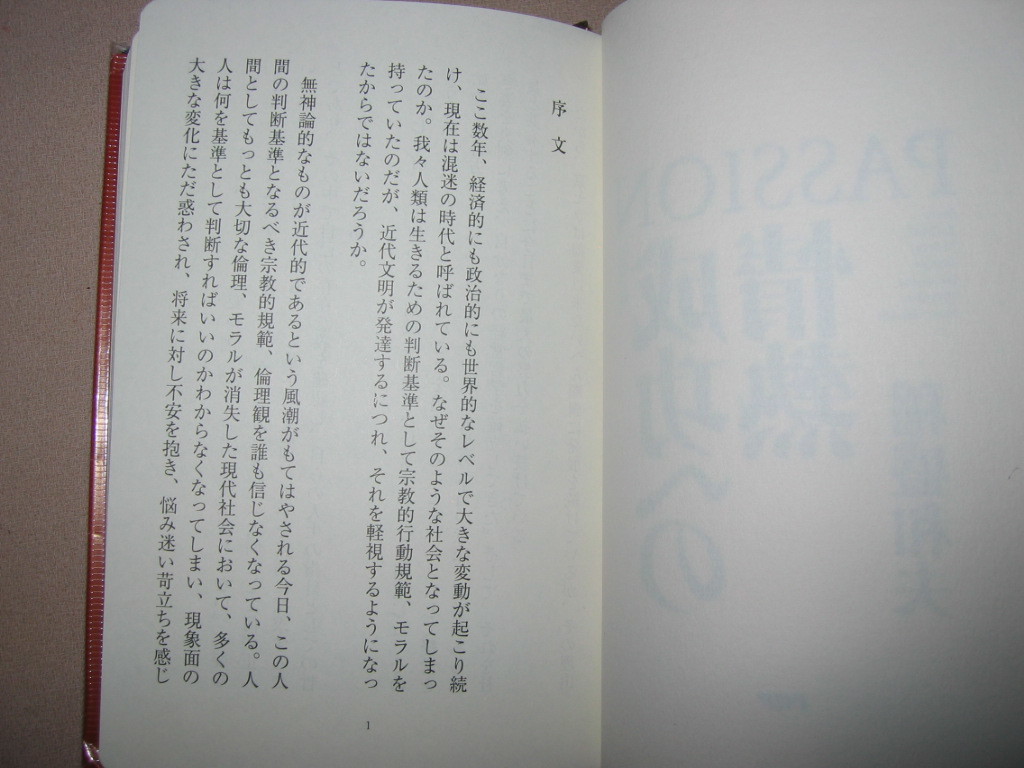 序文
ここ数年、経済的にも政治的にも世界的なレベルで大きな変動が起こり続
け、現在は混迷の時代と呼ばれている。なぜそのような社会となってしまっ
たのか。我々人類は生きるための判断基準として宗教的行動規範、モラルを
持っていたのだが、近代文明が発達するにつれ、それを軽視するようになっ
たからではないだろうか。
無神論的なものが近代的であるという風潮がもてはやされる今日、この人
間の判断基準となるべき宗教的規範、倫理観を誰も信じなくなっている。人
間としてもっとも大切な倫理、モラルが消失した現代社会において、多くの
人は何を基準として判断すればいいのかわからなくなってしまい、現象面の
大きな変化にただ惑わされ、将来に対し不安を抱き、悩み迷い苛立ちを感じ
1